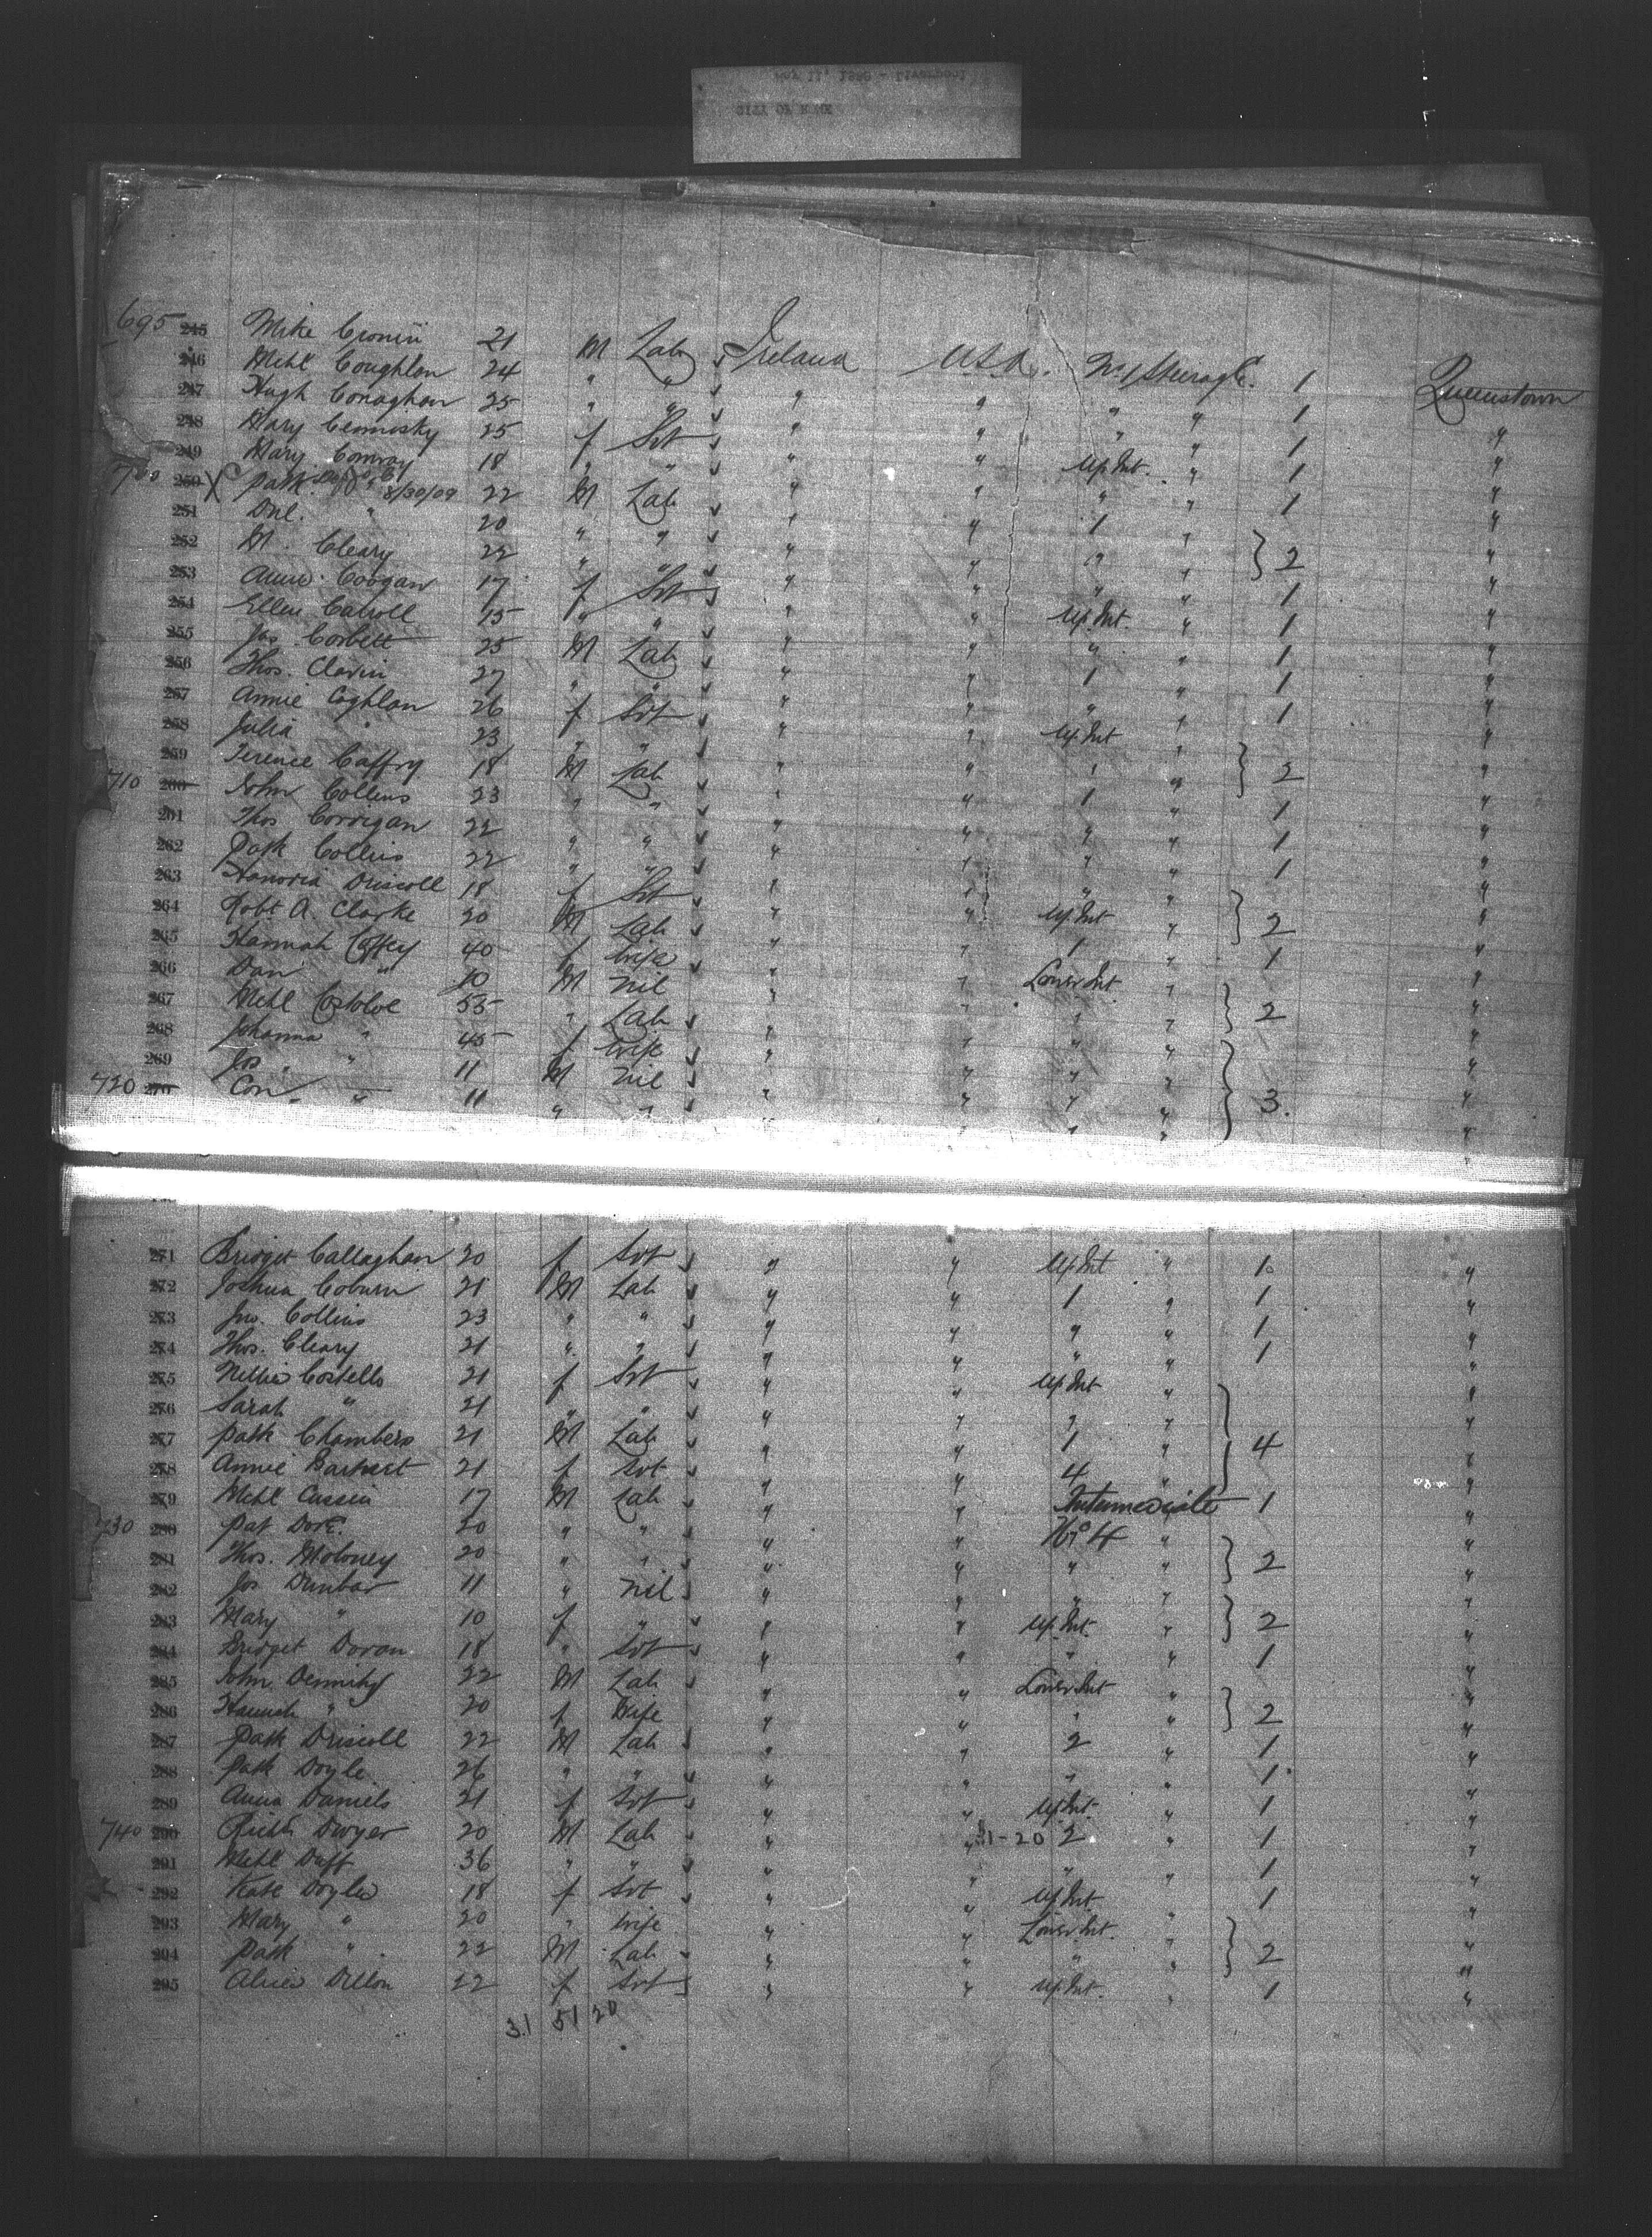 695 245 Mike Cronin 21 M Lab Ireland USA No 1 Steerage 1 Queenstown
246 Michl Coughlan 24 " " " " " " 1 "
247 Hugh Conaghan 25 " " " " " " 1 "
248 Mary 25 f Svt " " Up. Int. " 1 "
249 Mary Conway 18 " " " " " " 1 "
700 250 X Patk 8/30/09 22 M Lab " " 1 "
251 Dnl. " 20 " " " " " " } 2 "
252 M. Cleary 22 " " " " " " 1 "
253 Annie Coogan 17 f Svt " " Up. Int. " 1 "
254 Ellen Carroll 15 " " " " " " 1 "
255 Jas. Corbett 25 M Lab " " 1 " 1 "
256 Thos. Clavin 27 " " " " " " 1 "
257 Annie Coghlan 26 f Svt " " Up. Int " "
258 Julia " 23 " " " " " " } 2 "
259 Terence Caffry 18 M Lab " " 1 " 1 "
710 260 John Collins 23 " " " " " " 1 "
261 Thos Corrigan 22 " " " " " " 1 "
262 Patk Collins 22 " " " " " " "
263 Hanoria Driscoll 18 f Svt " " Up. Int " } 2 "
264 Robt A. Clarke 20 M Lab " " 1 " 1 "
265 Hannah Coffey 40 f Wife " " Lower Int " "
266 Dan " 10 M Nil " " " " } 2 "
267 Michl Costoloe 55 " Lab " " " " "
268 Johanna " 45 f Wife " " " " "
269 Jas. " 11 M Nil " " " " } 3. "
720 270 Con " 11 " " " " " " "
271 Bridget Callaghan 20 f Svt " " Up Int " 1 "
272 Joshua Coburn 21 M Lab " " 1 " 1 "
273 Jno. Collins 23 " " " " " " 1 "
274 Thos. Cleary 21 " " " " " " 1 "
275 Nellie Costello 21 f Svt " " Up Int " "
276 Sarah " 21 " " " " " " "
277 Patk Chambers 21 M Lab " " 1 " } 4 "
278 Annie 21 f Svt " " 4 " "
279 Michl Cussin 17 M Lab " " Intermediate 1 "
730 280 Pat 20 " " " " No 4 " "
281 Thos. Moloney 20 " " " " " " } 2 "
282 Jas Dunbar 11 " Nil " " " " "
283 Mary " 10 f " " " Up. Int. " } 2 "
284 Bridget Doran 18 " Svt " " " " 1 "
285 John Dennihy 22 M Lab " " Lower Int "
286 Hannah " 20 f Wife " " " " } 2 "
287 Patk Driscoll 22 M Lab " " 2 " 1 "
288 Patk Doyle 26 " " " " " " 1 "
289 Anna Daniels 21 f Svt " " Up. Int. " 1 "
740 290 Richd Dwyer 20 M Lab " " 1-20 2 " 1 "
291 Michl Duff 36 " " " " " " 1 "
292 Kate Doyle 18 f Svt " " Up Int " 1 "
293 Mary " 20 " Wife " " Lower Int. " "
294 Patk " 22 M Lab " " " " } 2 "
295 Alicia Dillon 22 f Svt " " Up. Int. " 1 "
31 51 20